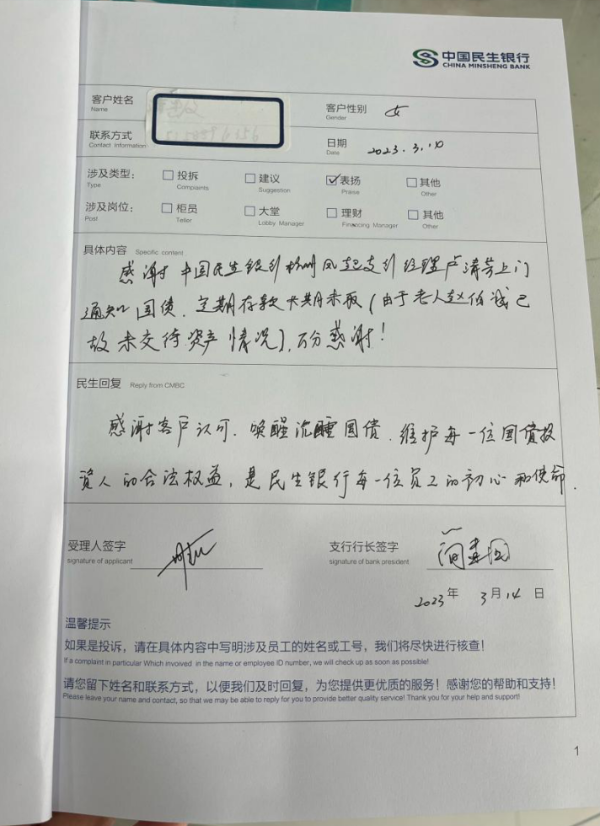 中国民生银行
CHINA MINSHENG BANK
客户姓名
Name
客户性别 女
Gender
联系方式
Contact Information
日期 2023.3.10
Date
涉及类型: 投拆 建议 表扬 其他
Type Compoaints Suggestion Praise Other
涉及岗位: 柜员 大堂 理财 其他
Post Teller Lobby Manager Financing Manager Other
具体内容 Specific content
感谢中国民生银行杭州凤起支行经理卢清芳上门
通知国债、定期存款长期未取(由于老人赵伯诚已
故未交待资产情况),万分感谢!
民生回复 Reply from CMBC
感谢客户认可、唤醒沉睡国债、维护每一位国债投
资人的合法权益,是民生银行每一位员工的初心和使命.
受理人签字
signature of applicant
支行行长签字
signature of bank president
2023年 3月14日
温馨提示
如果是投诉,请在具体内容中写明涉及员工的姓名或工号,我们将尽快进行核查!
If a complaint in particular Which involved in the name or employee ID number, we will check up as soon as possible!
请您留下姓名和联系方式,以便我们及时回复,为您提供更优质的服务!感谢您的帮助和支持!
Please leave your name and contact, so that we may be able to reply for you to provide better quality service! Thank you for your help and support!
1